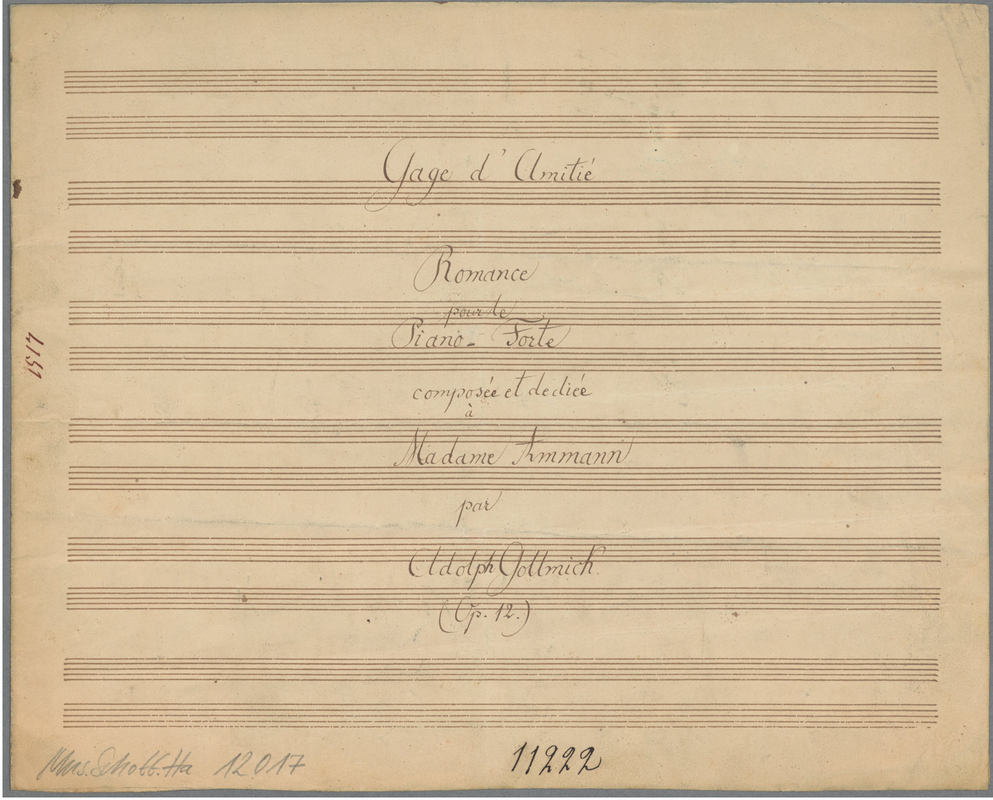 Gage d'Amitié
Romance
pour le
Piano-Forte
composée et dediée
à
Madame Ammann
par
Adolph Gollmick.
(Op. 12.)
1517
Mus. Schott. Ha 12017
11222